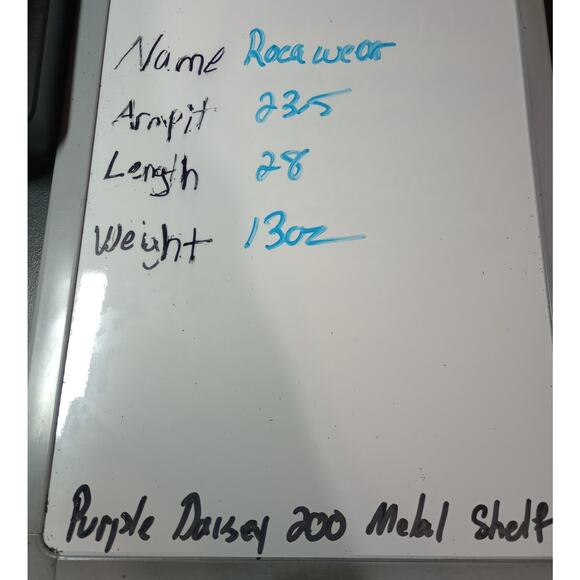 Name Rocawear
Armpit 23.5
Length 28
Weight 13oz
Purple Daisey 200 Metal Shelf